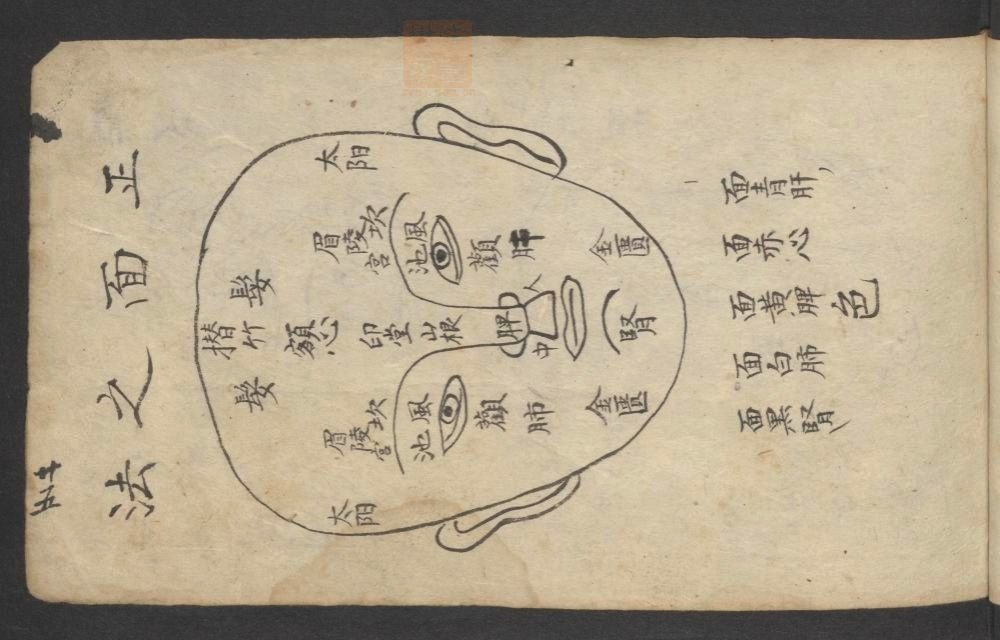 正面之法
太阳
太阳
髮
撍竹
髮
額心
眉陵宮
坎
印堂
眉陵宮
坎
山根
風池
風池
顴
顴
肝
脾
肺
人中
金匱
金匱
腎
面青肝
面赤心
面黄脾
色
面白肺
面黑腎